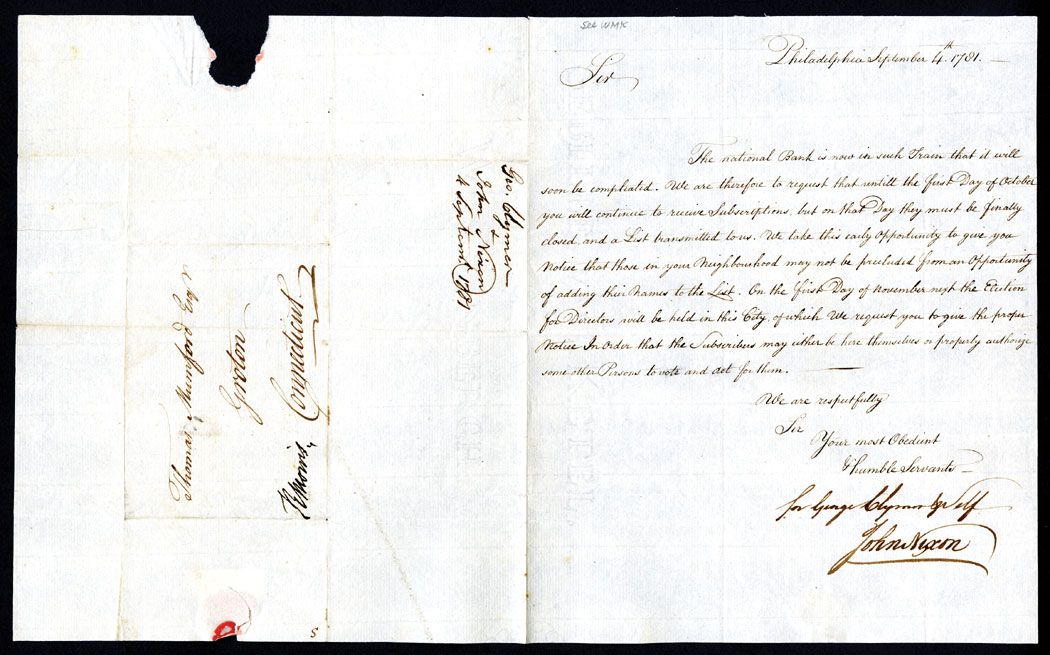 See WMK
Philadelphia September 4th. 1781. —
Sir
The national Bank is now in such Train that it will
soon be compleated. We are therefore to request that untill the first Day of October
you will continue to receive Subscriptions, but on that Day they must be finally
closed and a List transmitted to us. We take this early Opportunity to give you
Notice that those in your Neighbourhood may not be precluded from an Opportunity
of adding their Names to the List. On the first Day of November next the Election
for Directors will be held in this City, of which We request you to give the proper
Notice In Order that the Subscribers may either be here themselves or properly authorize
some other Persons to vote and act for them. —
We are respectfully
Sir
Your most Obedient
& humble Servants —
for George Clymer & Self
John Nixon
Geo. Clymer
&
John Nixon
4 Septemr. 1781
Thomas Mumford Esqr
Groton
Connecticut
RMorris
5